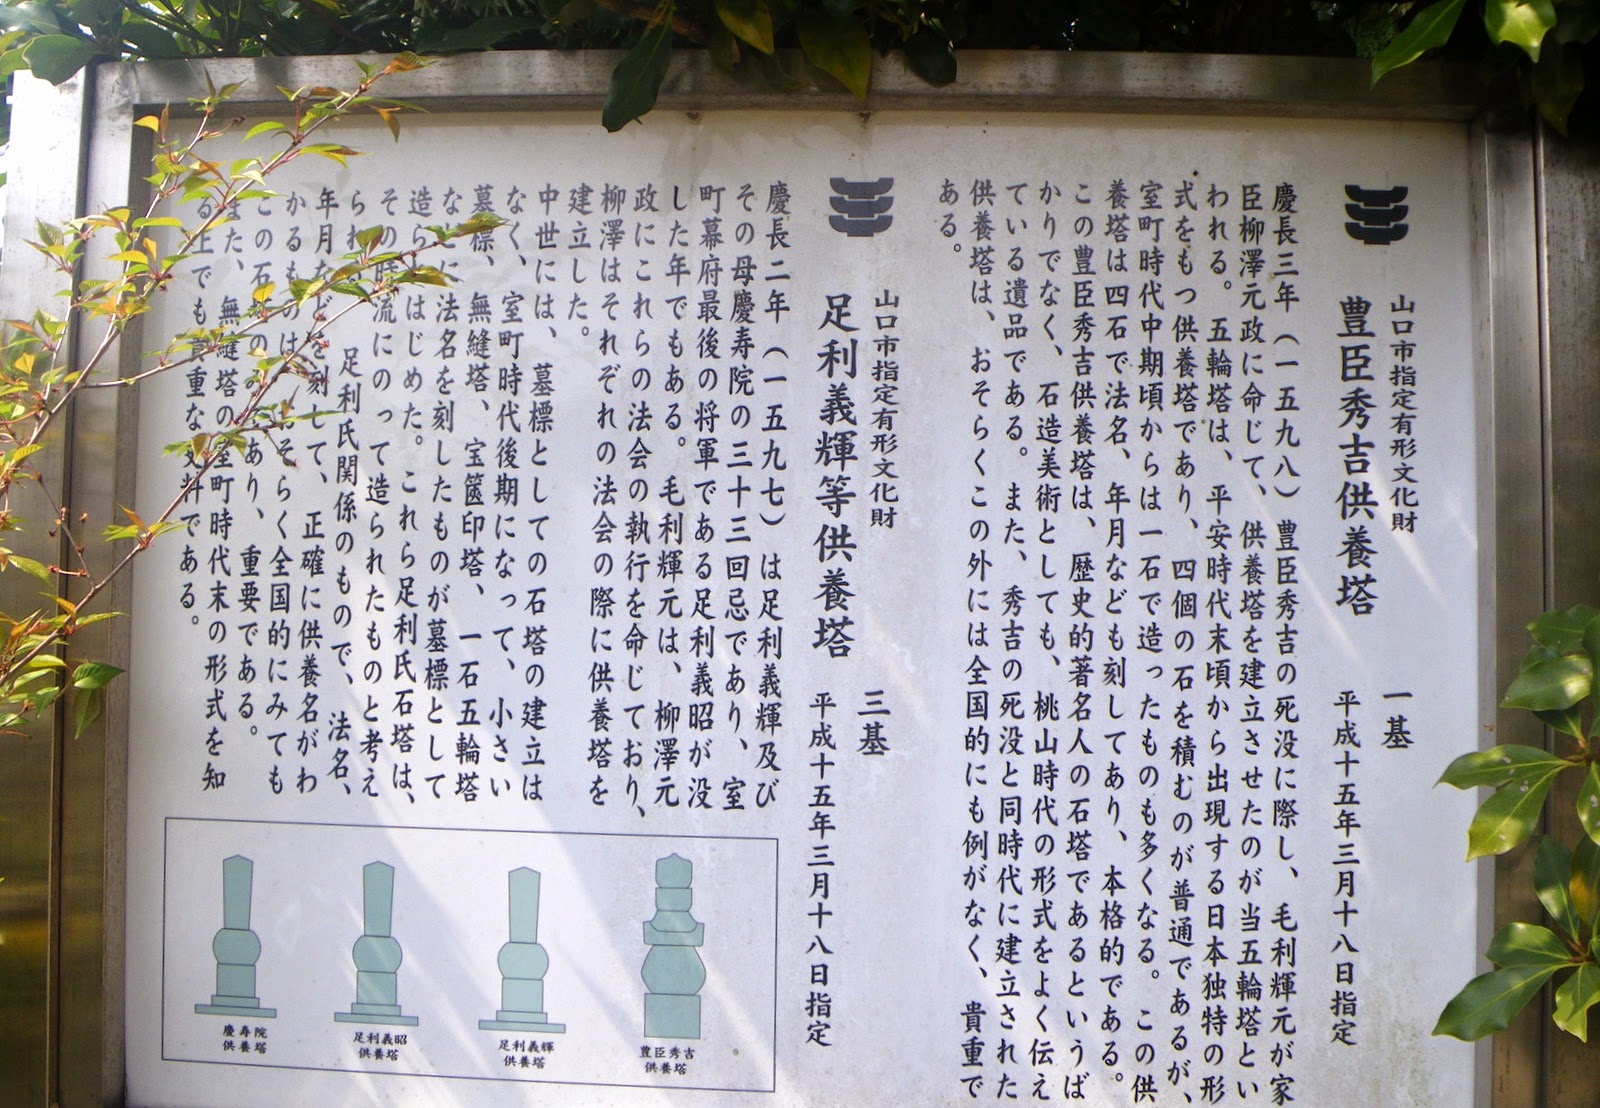 山口市指定有形文化財
豊臣秀吉供養塔
一基
平成十五年三月十八日指定
慶長三年（一五九八）豊臣秀吉の死没に際し、毛利輝元が家
臣柳澤元政に命じて、供養塔を建立させたのが当五輪塔とい
われる。五輪塔は、平安時代末頃から出現する日本独特の形
式をもつ供養塔であり、四個の石を積むのが普通であるが、
室町時代中期頃からは一石で造ったものも多くなる。この供
養塔は四石で法名、年月なども刻してあり、本格的である。
この豊臣秀吉供養塔は、歴史的著名人の石塔であるというば
かりでなく、石造美術としても、桃山時代の形式をよく伝え
ている遺品である。また、秀吉の死没と同時代に建立された
供養塔は、おそらくこの外には全国的にも例がなく、貴重で
ある。
山口市指定有形文化財
足利義輝等供養塔
三基
平成十五年三月十八日指定
慶長二年（一五九七）は足利義輝及び
その母慶寿院の三十三回忌であり、室
町幕府最後の将軍である足利義昭が没
した年でもある。毛利輝元は、柳澤元
政にこれらの法会の執行を命じており、
柳澤はそれぞれの法会の際に供養塔を
建立した。
中世には、墓標としての石塔の建立は
なく、室町時代後期になって、小さい
墓標、無縫塔、宝篋印塔、一石五輪塔
などに法名を刻したものが墓標として
造られはじめた。これら足利氏石塔は、
その時流にのって造られたものと考え
られ 足利氏関係のもので、法名、
年月などを刻して、正確に供養名がわ
かるものは おそらく全国的にみても
この石塔のみであり、重要である。
また、無縫塔の室町時代末の形式を知
る上でも貴重な史料である。
豊臣秀吉
供養塔
足利義輝
供養塔
足利義昭
供養塔
慶寿院
供養塔